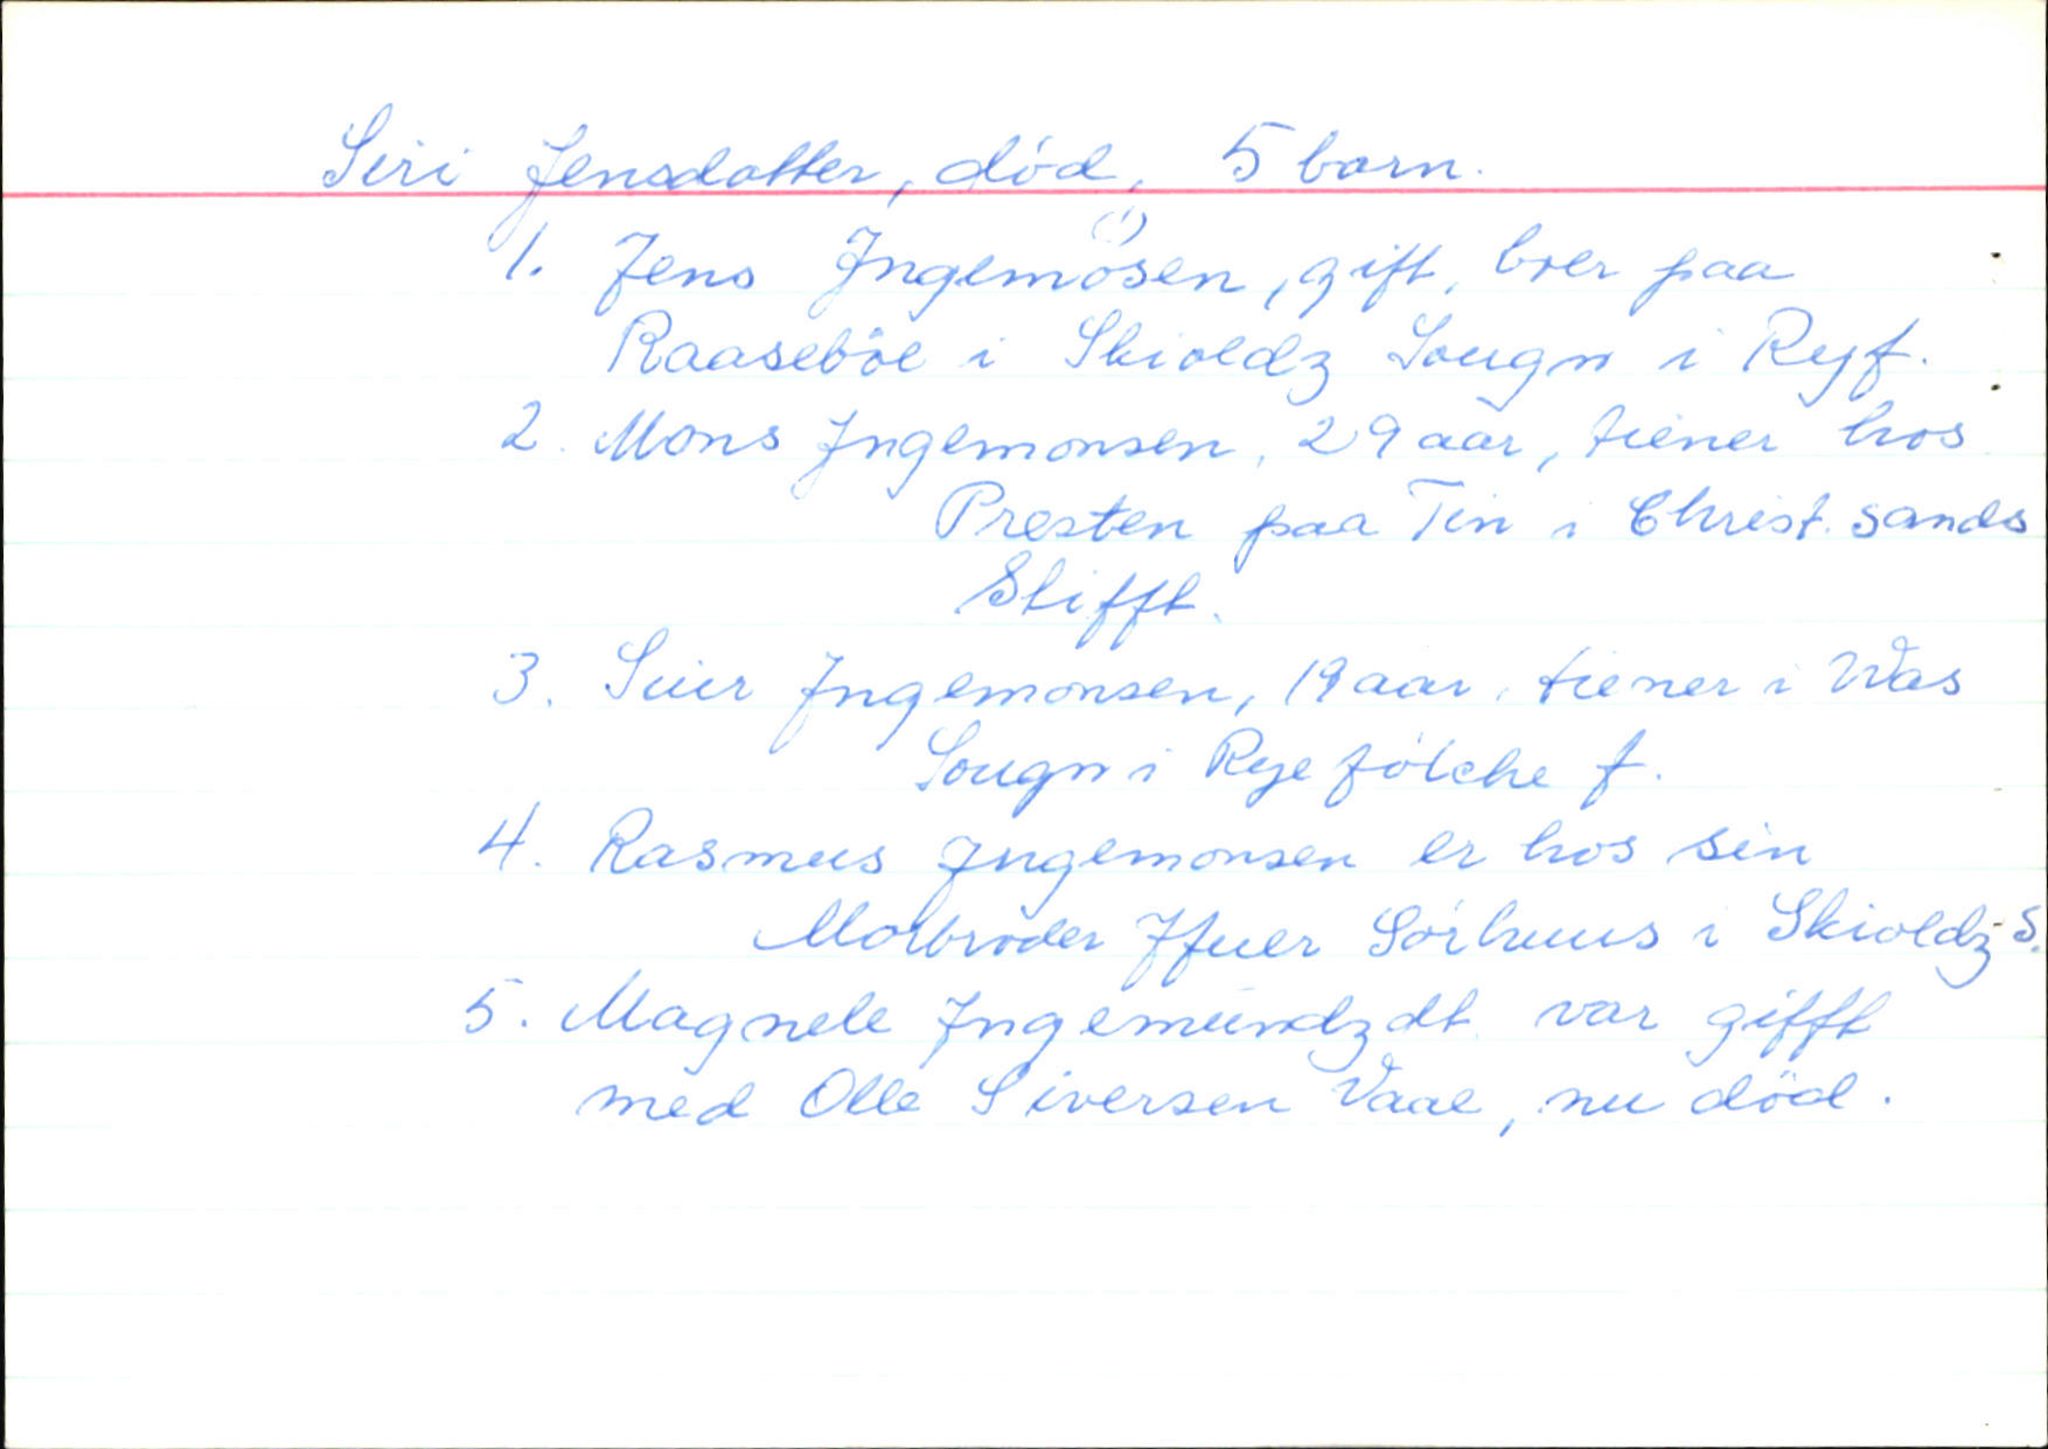 Siri Jensdatter, død, 5 barn.
1. Jens Ingemosen, (!) gift, boer paa
Raasebøe i Skioldz Sougn i Ryf.
2. Mons Ingemonsen, 29 aar, tiener hos
Presten paa Tin i Christ. sands
Stifft.
3. Siur Ingemonsen, 19 aar, tiener i Was
Sougn i Ryefölche f.
4. Rasmus Ingemonsen er hos sin
Morbroder Ifuer Sørhuus i Skioldz S.
5. Magnele Ingemundzdt. var gifft
med Olle Siversen Vaae, nu död.